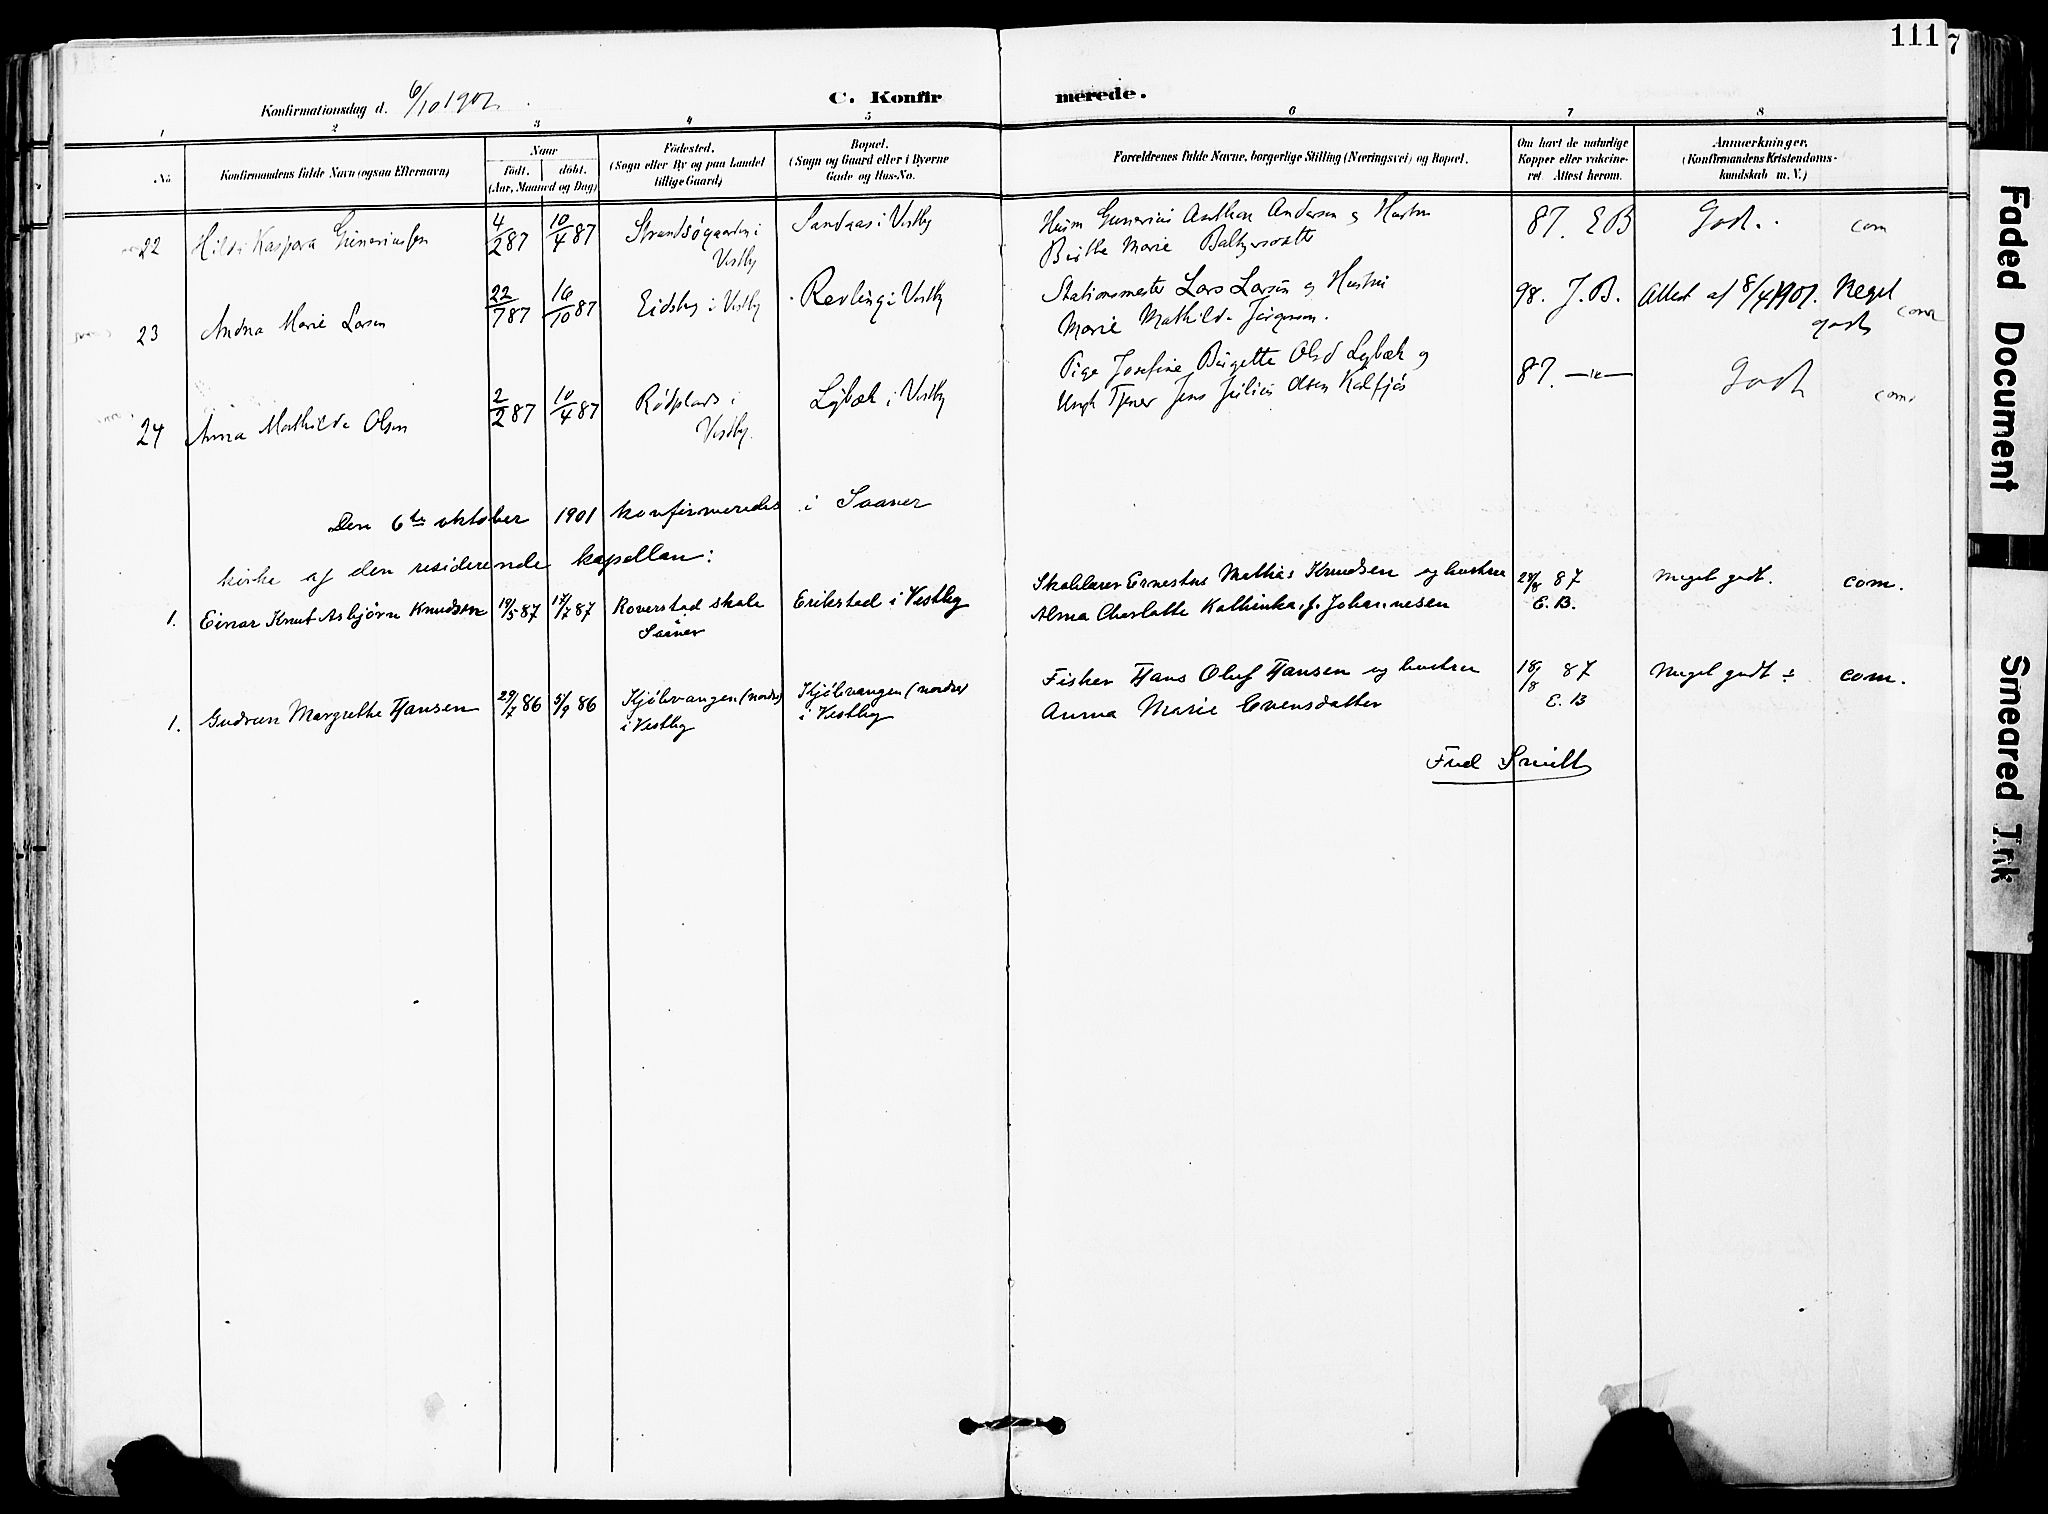 111
7
Konfirmationsdag d. 6/10 1901.
C. Konfirmerede.
1 2 3 4 5 6 7 8
No
Konfirmandens fulde Navn (ogsaa Efternavn)
Naar
født. døbt.
(Aar, Maaned og Dag)
Fødested.
(Sogn eller By og paa Landet
tillige Gaard)
Bopæl.
(Sogn og Gaard eller i Byerne
Gade og Hus-No.
Forældrenes fulde Navne, borgerlige Stilling (Næringsvei) og Bopæl.
Om havt de naturlige
Kopper eller vakcine-
ret. Attest herom.
Anmærkninger.
(Konfirmandens Kristendoms-
kundskab m. V.)
22 Hilda Kaspara 4/2 87 10/4 87 Strandsøgaarden i Vestby Sandaas i Vestby
Gunerius Anthon Andersen og Hustru
Marie 87. EB Godt. com
23 Andna Marie Larsen 22/7 87 16/10 87 Eidsby i Vestby Revling i Vestby
Stationsmester Lars Larsen og Hustru
Marie Mathilde Jørgensen. 98. J.B. Attest af 8/4 1901. Meget godt com
24 Anna Mathilde Olsen 2/2 87 10/4 87 Rødplads i Vestby. Lybæk i Vestby
Pige Josefine Birgette Olsd Lybæk og
Ungk Tjener Jens Julius Olsen Kalfjøs 87. —"— Godt com.
Den 6te oktober 1901 konfirmeredes i Saaner
kirke af den residerende kapellan:
1. Einar Knut Asbjørn Knudsen 19/5 87 17/7 87 Roverstad skole Saaner Erikstad i Vestby
Skolelærer Ernestus Mathias Knudsen og hustru
Alma Charlotte Kathinka f. Johannesen 87 E.B. Meget godt. com.
1. Gudrun Margrethe Hansen 29/7 86 5/9 86 Kjølvangen (nordre) i Vestby Kjølvangen (nordre) i Vestby
Fisker Hans Oluf Hansen og hustru
Anna Marie Evensdatter 18/8 87 E.B Meget godt ± com.
Fred Smith
Faded Document
Smeared Ink